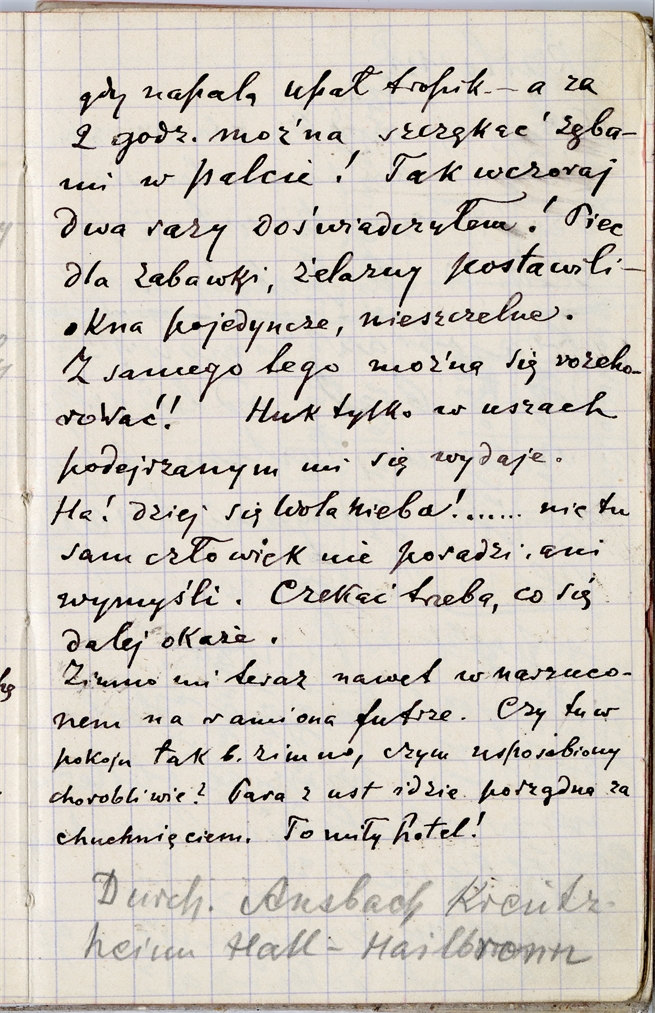 gdy napalą upał tropik. – a za
2 godz. można szczękać zęba-
mi w palcie! Tak wczoraj
dwa razy doświadczyłem! Piec
dla zabawki, żelazny postawili –
okna pojedyncze, nieszczelne.
Z samego tego można się rozcho-
rować! Huk tylko w uszach
podejrzanym mi się wydaje.
Ha! dziej się Wola Nieba!...... nic tu
sam człowiek nie poradzi, ani
wymyśli. Czekać trzeba, co się
dalej okaże.
Zimno mi teraz nawet w narzuco-
nem na ramiona futrze. Czy tu w
pokoju tak b. zimno, czym usposobiony
chorobliwie? Para z ust idzie porządna za
chuchnięciem. To miły hotel!
Durch. Ansbach Kreutz-
heim Hall – Hailbronn